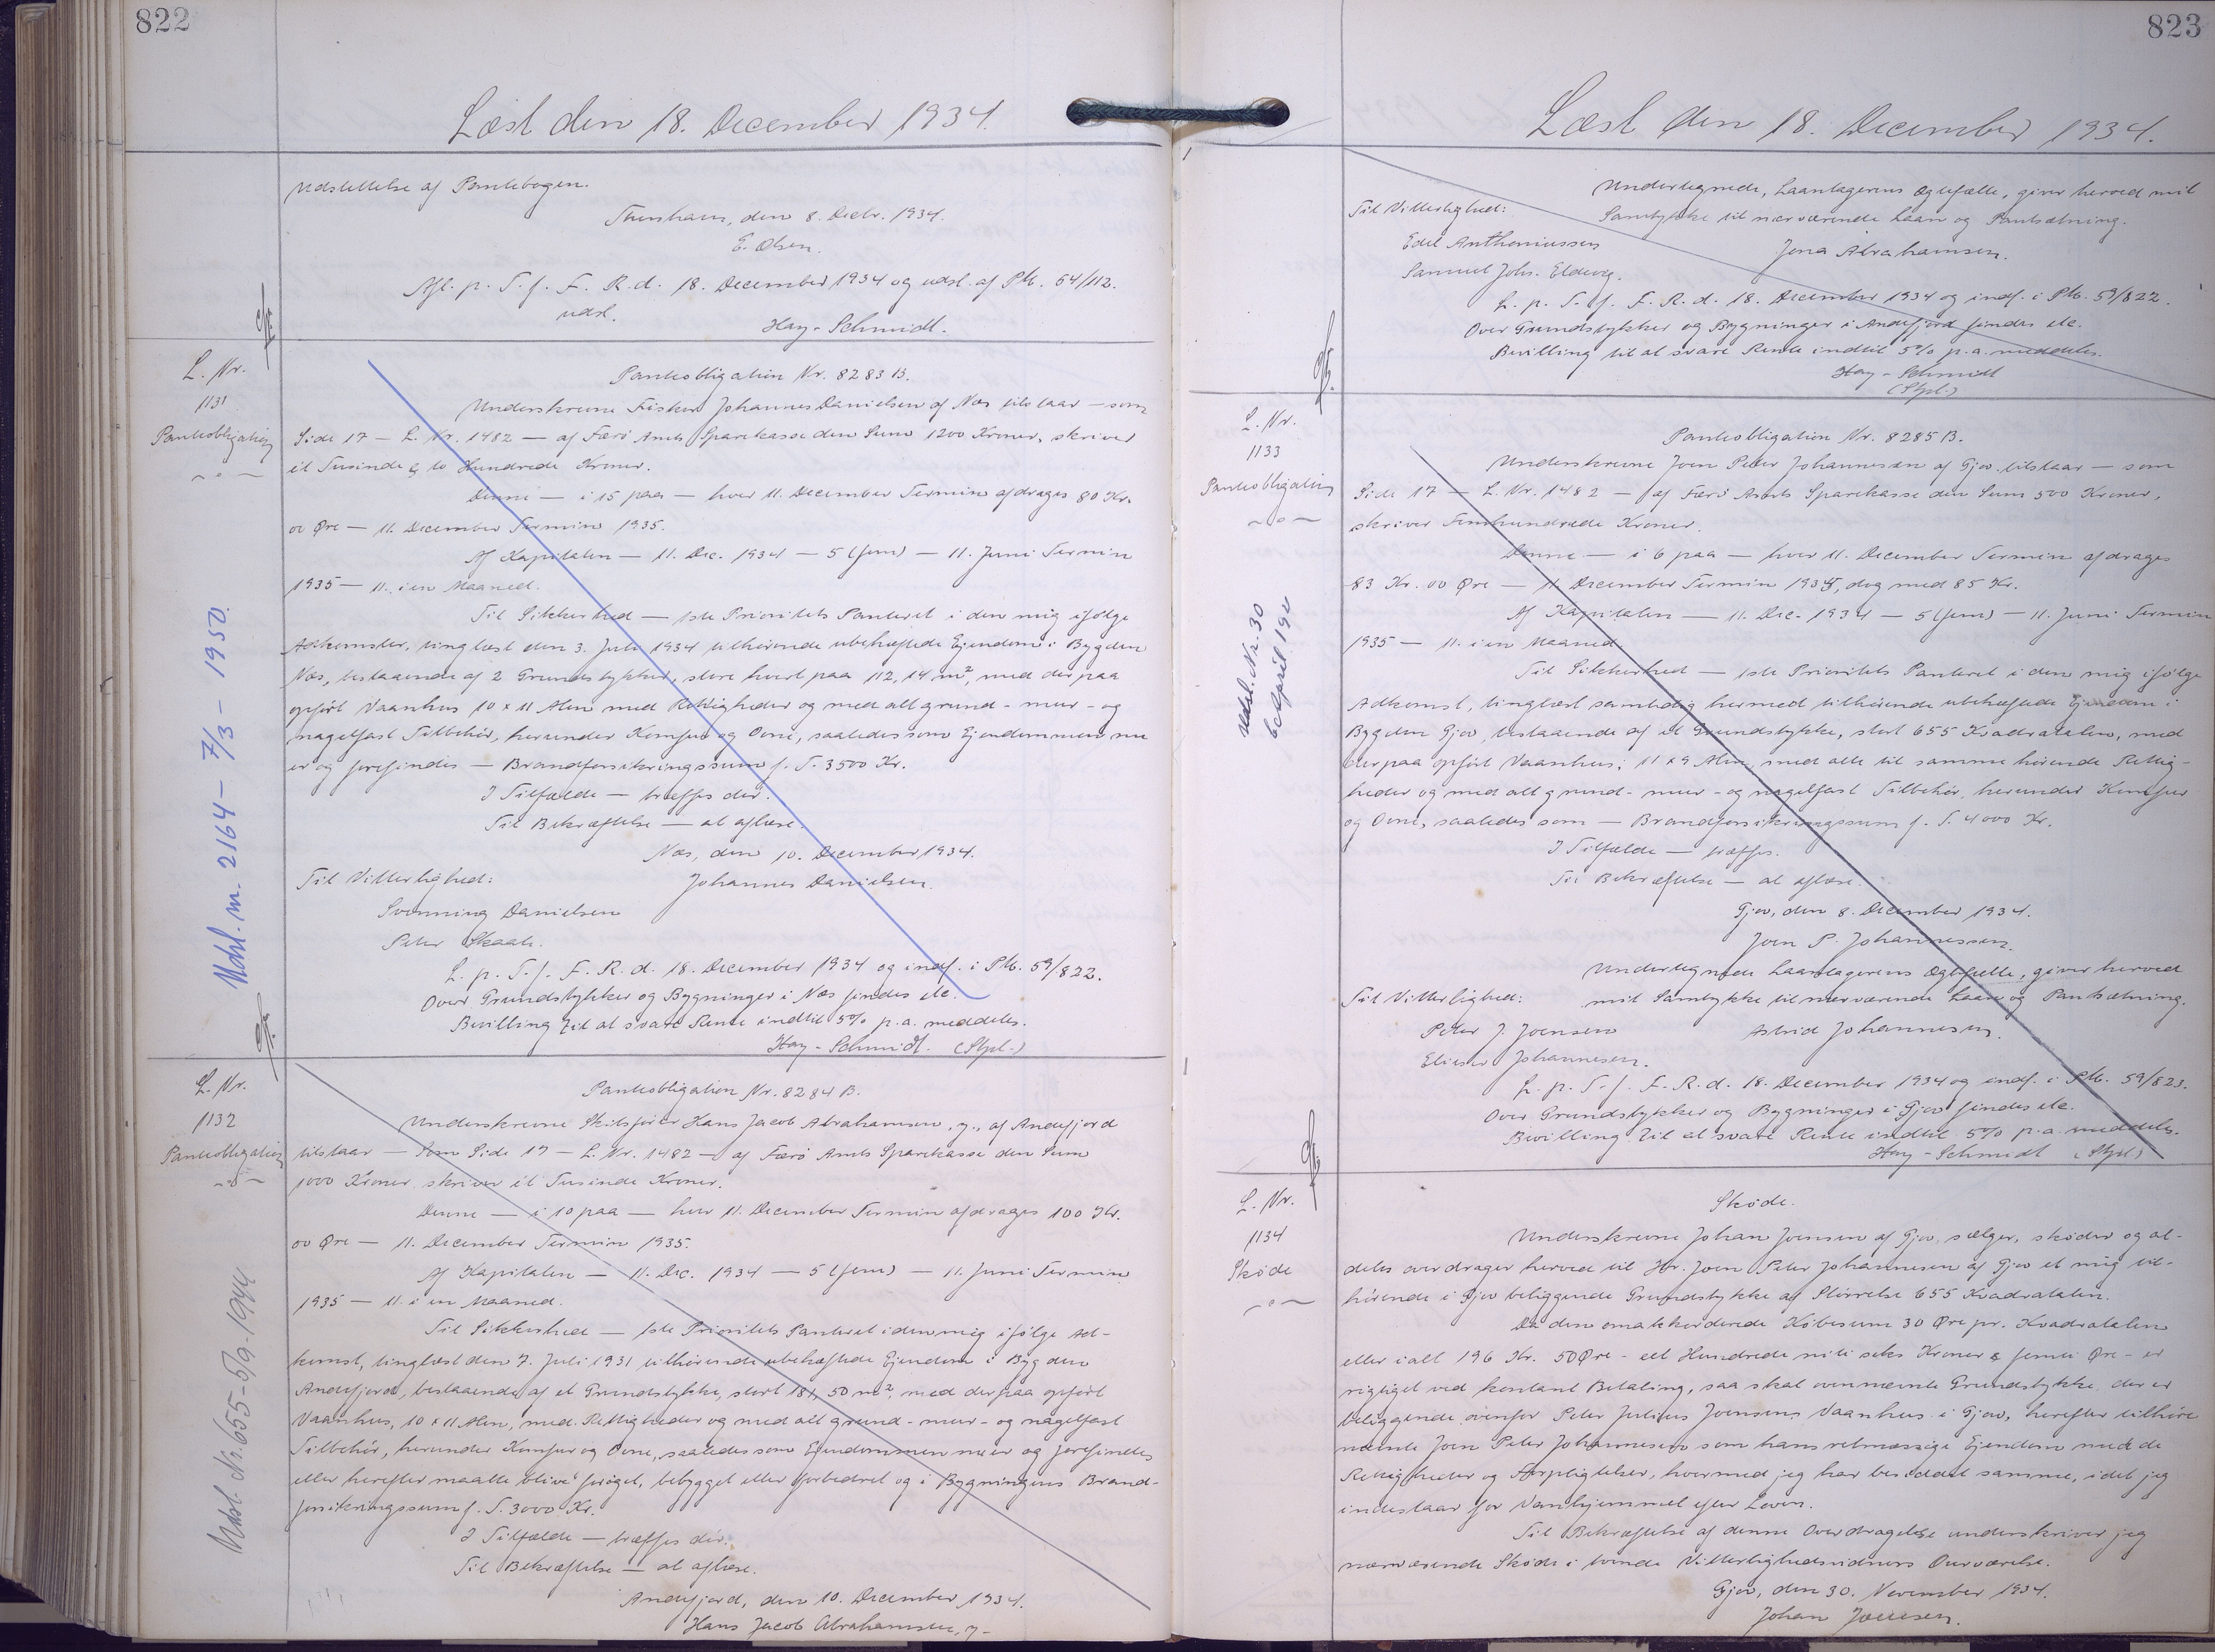 822
Læst den 18. December 1934.
Udslettelse af Pantebogen.
Thorshavn, den 8. Decbr. 1934.
E. Olsen.
Afl. p. T. f. F. R. d. 18. December 1934 og udsl. af Ptb. 54/112.
udsl.
Hay-Schmidt.
L. Nr.
1131
Pantobligation
Pantobligation Nr. 8283 B.
Underskrevne Fisker Johannes Danielsen af Næs tilstaar — som
Side 17 — L. Nr. 1482 — af Færø Amts Sparekasse den Sum 1200 Kroner, skriver
et Tusinde & to Hundrede Kroner.
Denne — i 15 paa — hver 11. December Termin afdrages 80 Kr.
00 Øre — 11. December Termin 1935.
Af Kapitalen — 11. Dec. 1934 — 5 (fem) — 11. Juni Termin
1935 — 11. i en Maaned.
Til Sikkerhed — 1ste Prioritets Panteret i den mig ifølge
Adkomster, tinglæst den 3. Juli 1934 tilhørende ubehæftede Ejendom i Bygden
Næs, bestaaende af 2 Grundstykker, store hvert paa 112,14 m², med der paa
opført Vaanhus 10 x 11 Alen med Rettigheder og med alt grund- mur- og
nagelfast Tilbehør, herunder Komfur og Ovne, saaledes som Ejendommen nu
er og forefindes — Brandforsikringssum f. T. 3500 Kr.
I Tilfælde — træffes der.
Til Bekræftelse — at aflæse.
Næs, den 10. December 1934.
Til Vitterlighed: Johannes Danielsen.
Svenning Danielsen
Peter Skaale.
L. p. T. f. F. R. d. 18. December 1934 og indf. i Ptb. 59/822.
Over Grundstykker og Bygninger i Næs findes etc.
Bevilling til at svare Rente indtil 5% p.a. meddeles.
Hay-Schmidt. (Stpl.)
Udsl. nr. 2164 — 7/3 — 1950.
L. Nr.
1132
Pantobligation
Pantobligation Nr. 8284 B.
Underskrevne Skibsfører Hans Jacob Abrahamsen, y., af Andefjord
tilstaar — som Side 17 — L. Nr. 1482 — af Færø Amts Sparekasse den Sum
1000 Kroner skriver et Tusinde Kroner.
Denne — i 10 paa — hver 11. December Termin afdrages 100 Kr.
00 Øre — 11. December Termin 1935.
Af Kapitalen — 11. Dec. 1934 — 5 (fem) — 11. Juni Termin
1935 — 11. i en Maaned.
Til Sikkerhed — 1ste Prioritets Panteret i den mig ifølge Ad-
komst, tinglæst den 7. Juli 1931 tilhørende ubehæftede Ejendom i Bygden
Andefjord, bestaaende af et Grundstykke, stort 181,50 m², med der paa opført
Vaanhus, 10 x 11 Alen, med Rettigheder og med alt grund- mur- og nagelfast
Tilbehør, herunder Komfur og Ovne, saaledes som Ejendommen nu er og forefindes
eller herefter maatte blive forøget, bebygget eller forbedret og i Bygningens Brand-
forsikringssum f. T. 3000 Kr.
I Tilfælde — træffes der.
Til Bekræftelse — at aflæse.
Andefjord, den 10. December 1934.
Hans Jacob Abrahamsen, y.
Udsl. Nr. 655 - 5/9 - 1944
823
Læst den 18. December 1934.
Undertegnede, Laantagerens Ægtefælle, giver herved mit
Til Vitterlighed: Samtykke til nærværende Laan og Pantsætning.
Edel Antheniussen Jona Abrahamsen.
Samuel Johs. Eldevig.
L. p. T. f. F. R. d. 18. December 1934 og indf. i Ptb. 59/822.
Over Grundstykker og Bygninger i Andefjord findes etc.
Bevilling til at svare Rente indtil 5% p.a. meddeles.
Hay-Schmidt
(Stpl.)
L. Nr.
1133
Pantobligation
Pantobligation Nr. 8285 B.
Underskrevne Joen Peter Johannesen af Gjov tilstaar — som
Side 17 — L. Nr. 1482 — af Færø Amts Sparekasse den Sum 500 Kroner,
skriver Femhundrede Kroner.
Denne — i 6 paa — hver 11. December Termin afdrages
83 Kr. 00 Øre — 11. December Termin 1935, dog med 85 Kr.
Af Kapitalen — 11. Dec. 1934 — 5 (fem) — 11. Juni Termin
1935 — 11. i en Maaned
Til Sikkerhed — 1ste Prioritets Panteret i den mig ifølge
Adkomst, tinglæst samtidig hermed tilhørende ubehæftede Ejendom i
Bygden Gjov, bestaaende af et Grundstykke, stort 655 Kvadratalen, med
derpaa opført Vaanhus; 11 x 9 Alen, med alle til samme hørende Rettig-
heder og med alt grund- mur- og nagelfast Tilbehør, herunder Komfur
og Ovne, saaledes som — Brandforsikringssum f. T. 4000 Kr.
I Tilfælde — træffes.
Til Bekræftelse — at aflæse.
Gjov, den 8. December 1934.
Joen P. Johannessen.
Undertegnede Laantagerens Ægtefælle, giver herved
Til Vitterlighed: mit Samtykke til nærværende Laan og Pantsætning.
Peter J. Joensen Astrid Johannesen.
Elieser Johannesen.
L. p. T. f. F. R. d. 18. December 1934 og indf. i Ptb. 59/823.
Over Grundstykker og Bygninger i Gjov findes etc.
Bevilling til at svare Rente indtil 5% p.a. meddeles.
Hay-Schmidt (Stpl)
Udsl. Nr. 30
6 April 194
L. Nr.
1134
Skøde
Skøde.
Underskrevne Johan Joensen af Gjov, sælger, skøder og al-
deles overdrager herved til Hr. Joen Peter Johannesen af Gjov et mig til-
hørende i Gjov beliggende Grundstykke af Størrelse 655 Kvadratalen.
Da den omakkorderede Købesum 30 Øre pr. Kvadratalen
eller i alt 196 Kr. 50 Øre - eet Hundrede niti seks Kroner & femti Øre - er
rigtiget ved kontant Betaling, saa skal ovennævnte Grundstykke, der er
beliggende ovenfor Peter Julius Joensens Vaanhus i Gjov, herefter tilhøre
nævnte Joen Peter Johannesen som hans retmæssige Ejendom med de
Rettigheder og Forpligtelser, hvormed jeg har besiddet samme, idet jeg
indestaar for Vanhjemmel efter Loven.
Til Bekræftelse af denne Overdragelse underskriver jeg
nærværende Skøde i tvende Vitterlighedsvidners Overværelse.
Gjov, den 30. November 1934.
Johan Joensen.